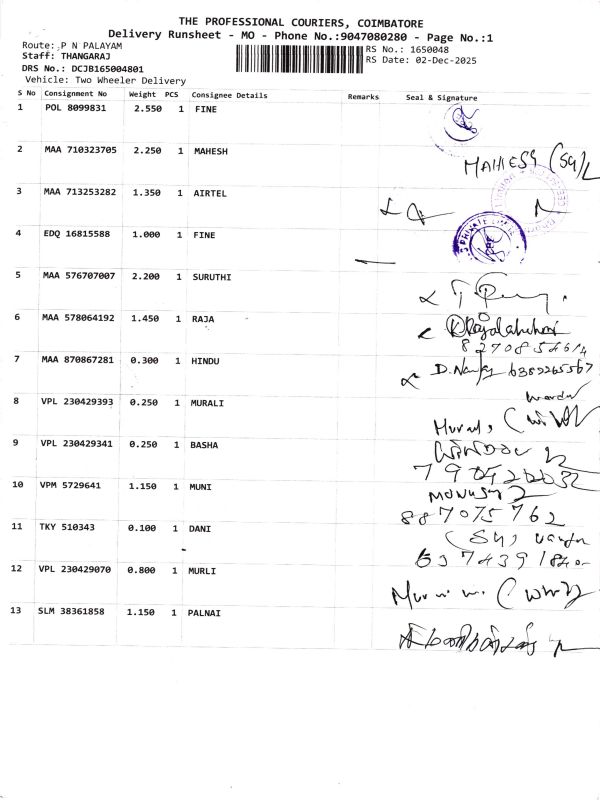 THE PROFESSIONAL COURIERS, COIMBATORE
Delivery Runsheet - MO - Phone No.:9047080280 - Page No.:1
Route: P N PALAYAM
RS No.: 1650048
Staff: THANGARAJ
RS Date: 02-Dec-2025
DRS No.: DCJB165004801
Vehicle: Two Wheeler Delivery
S No Consignment No Weight PCS Consignee Details Remarks Seal & Signature
1 POL 8099831 2.550 1 FINE
2 MAA 710323705 2.250 1 MAHESH
3 MAA 713253282 1.350 1 AIRTEL
4 EDQ 16815588 1.000 1 FINE
5 MAA 576707007 2.200 1 SURUTHI
6 MAA 578064192 1.450 1 RAJA
7 MAA 870867281 0.300 1 HINDU
8 VPL 230429393 0.250 1 MURALI
9 VPL 230429341 0.250 1 BASHA
10 VPM 5729641 1.150 1 MUNI
887075762
11 TKY 510343 0.100 1 DANI
12 VPL 230429070 0.800 1 MURLI
13 SLM 38361858 1.150 1 PALNAI